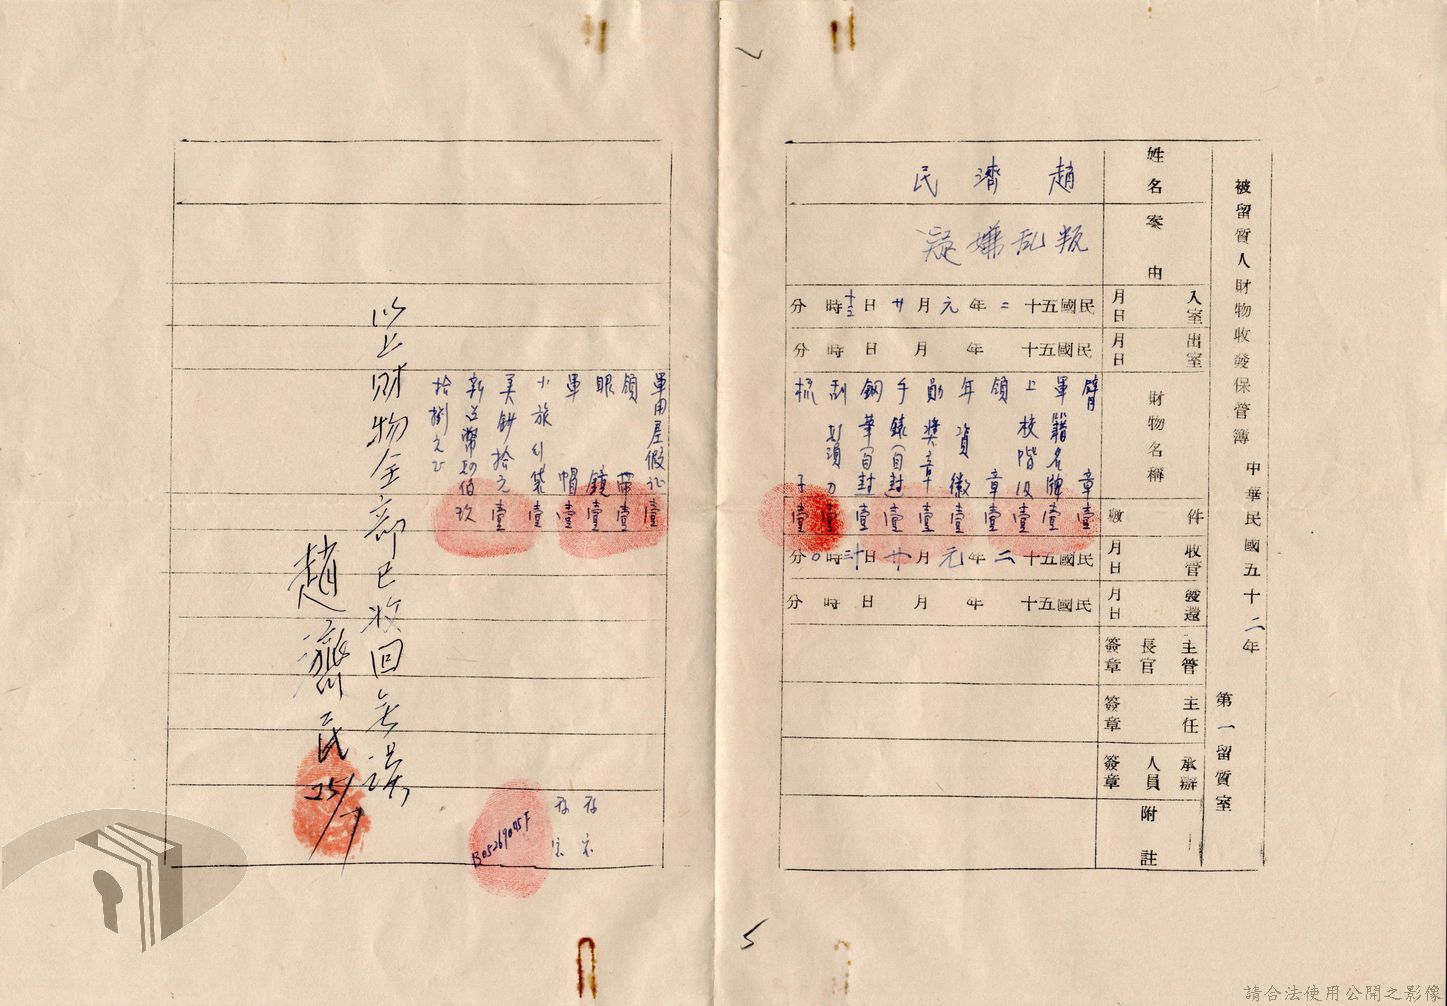 被留質人財物收發保管簿
中華民國五十二年
第一留質室
姓名
趙濟民
案由
叛乱嫌疑
入室月日
民國五十二年元月廿日十三時 分
出室月日
民國五十 年 月 日 時 分
財物名稱
件數
臂章壹
軍籍名牌壹
上校階級壹
領章壹
年資徽壹
勛獎章壹
手錶(自封)壹
鋼筆(自封)壹
刮鬍刀壹
梳子壹
收管月日
民國五十二年元月廿日十三時0分
發還月日
民國五十 年 月 日 時 分
主管長官簽章
主任簽章
承辦人員簽章
附註
軍用差假証壹
領帶壹
眼鏡壹
軍帽壹
小旅行袋壹
美鈔拾元壹
B05269095F
以上財物全部已收回無誤
趙濟民
25/7
5
請合法使用公開之影像